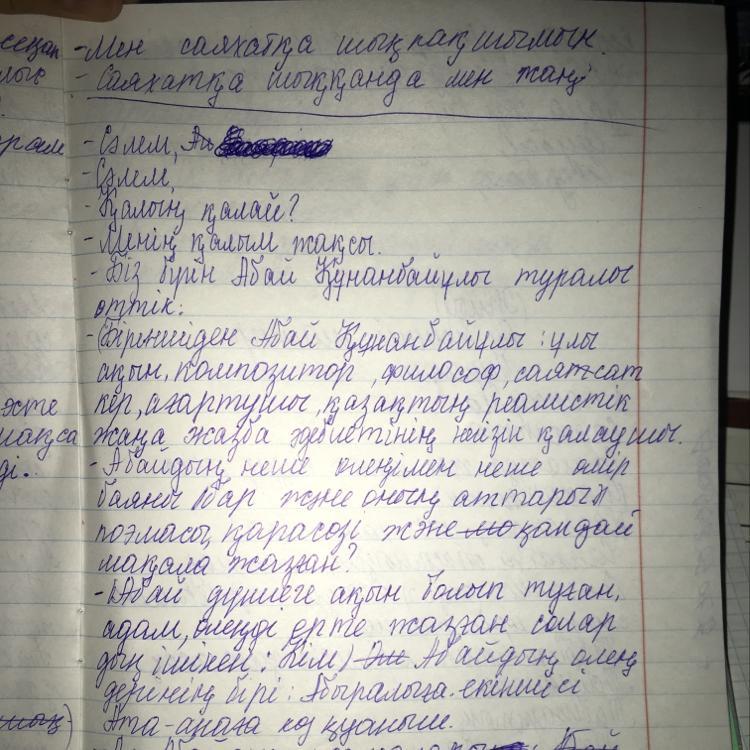 сецап - Мен саяхатқа шыққақшымын.
лыс - Саяхатқа шыққанда мен жаңі
орам - Сәлем, Аб
- Сәлем,
- Қалың қалай?
- Менің қалым жақсы.
- Біз бүгін Абай Құнанбайұлы туралы
өттік:
- (Біріншійден Абай Құнанбайұлы : ұлы
ақын, композитор, философ, саятсат
эхте кер, ағартушы, қазақтың реалистік
мақса жаңа жазба әдебиетінің негізін қалаушы.
ді.. - Абайдың неше өлеңімен неше өмір
баяны бар және оның аттары
поэмасы, қарасөзі және қандай
мақала жазған?
- (Абай дүниеге ақын болып туған,
адам, өлеңді ерте жазған солар
дың ішінен: Кім) Абайдың өлең
дерінің бірі: Абыралыға. екіншісі
Ата-анаға көз қуаныш.